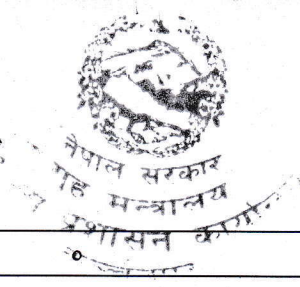 नेपाल सरकार
गृह मन्त्रालय
प्रशासन कार्या